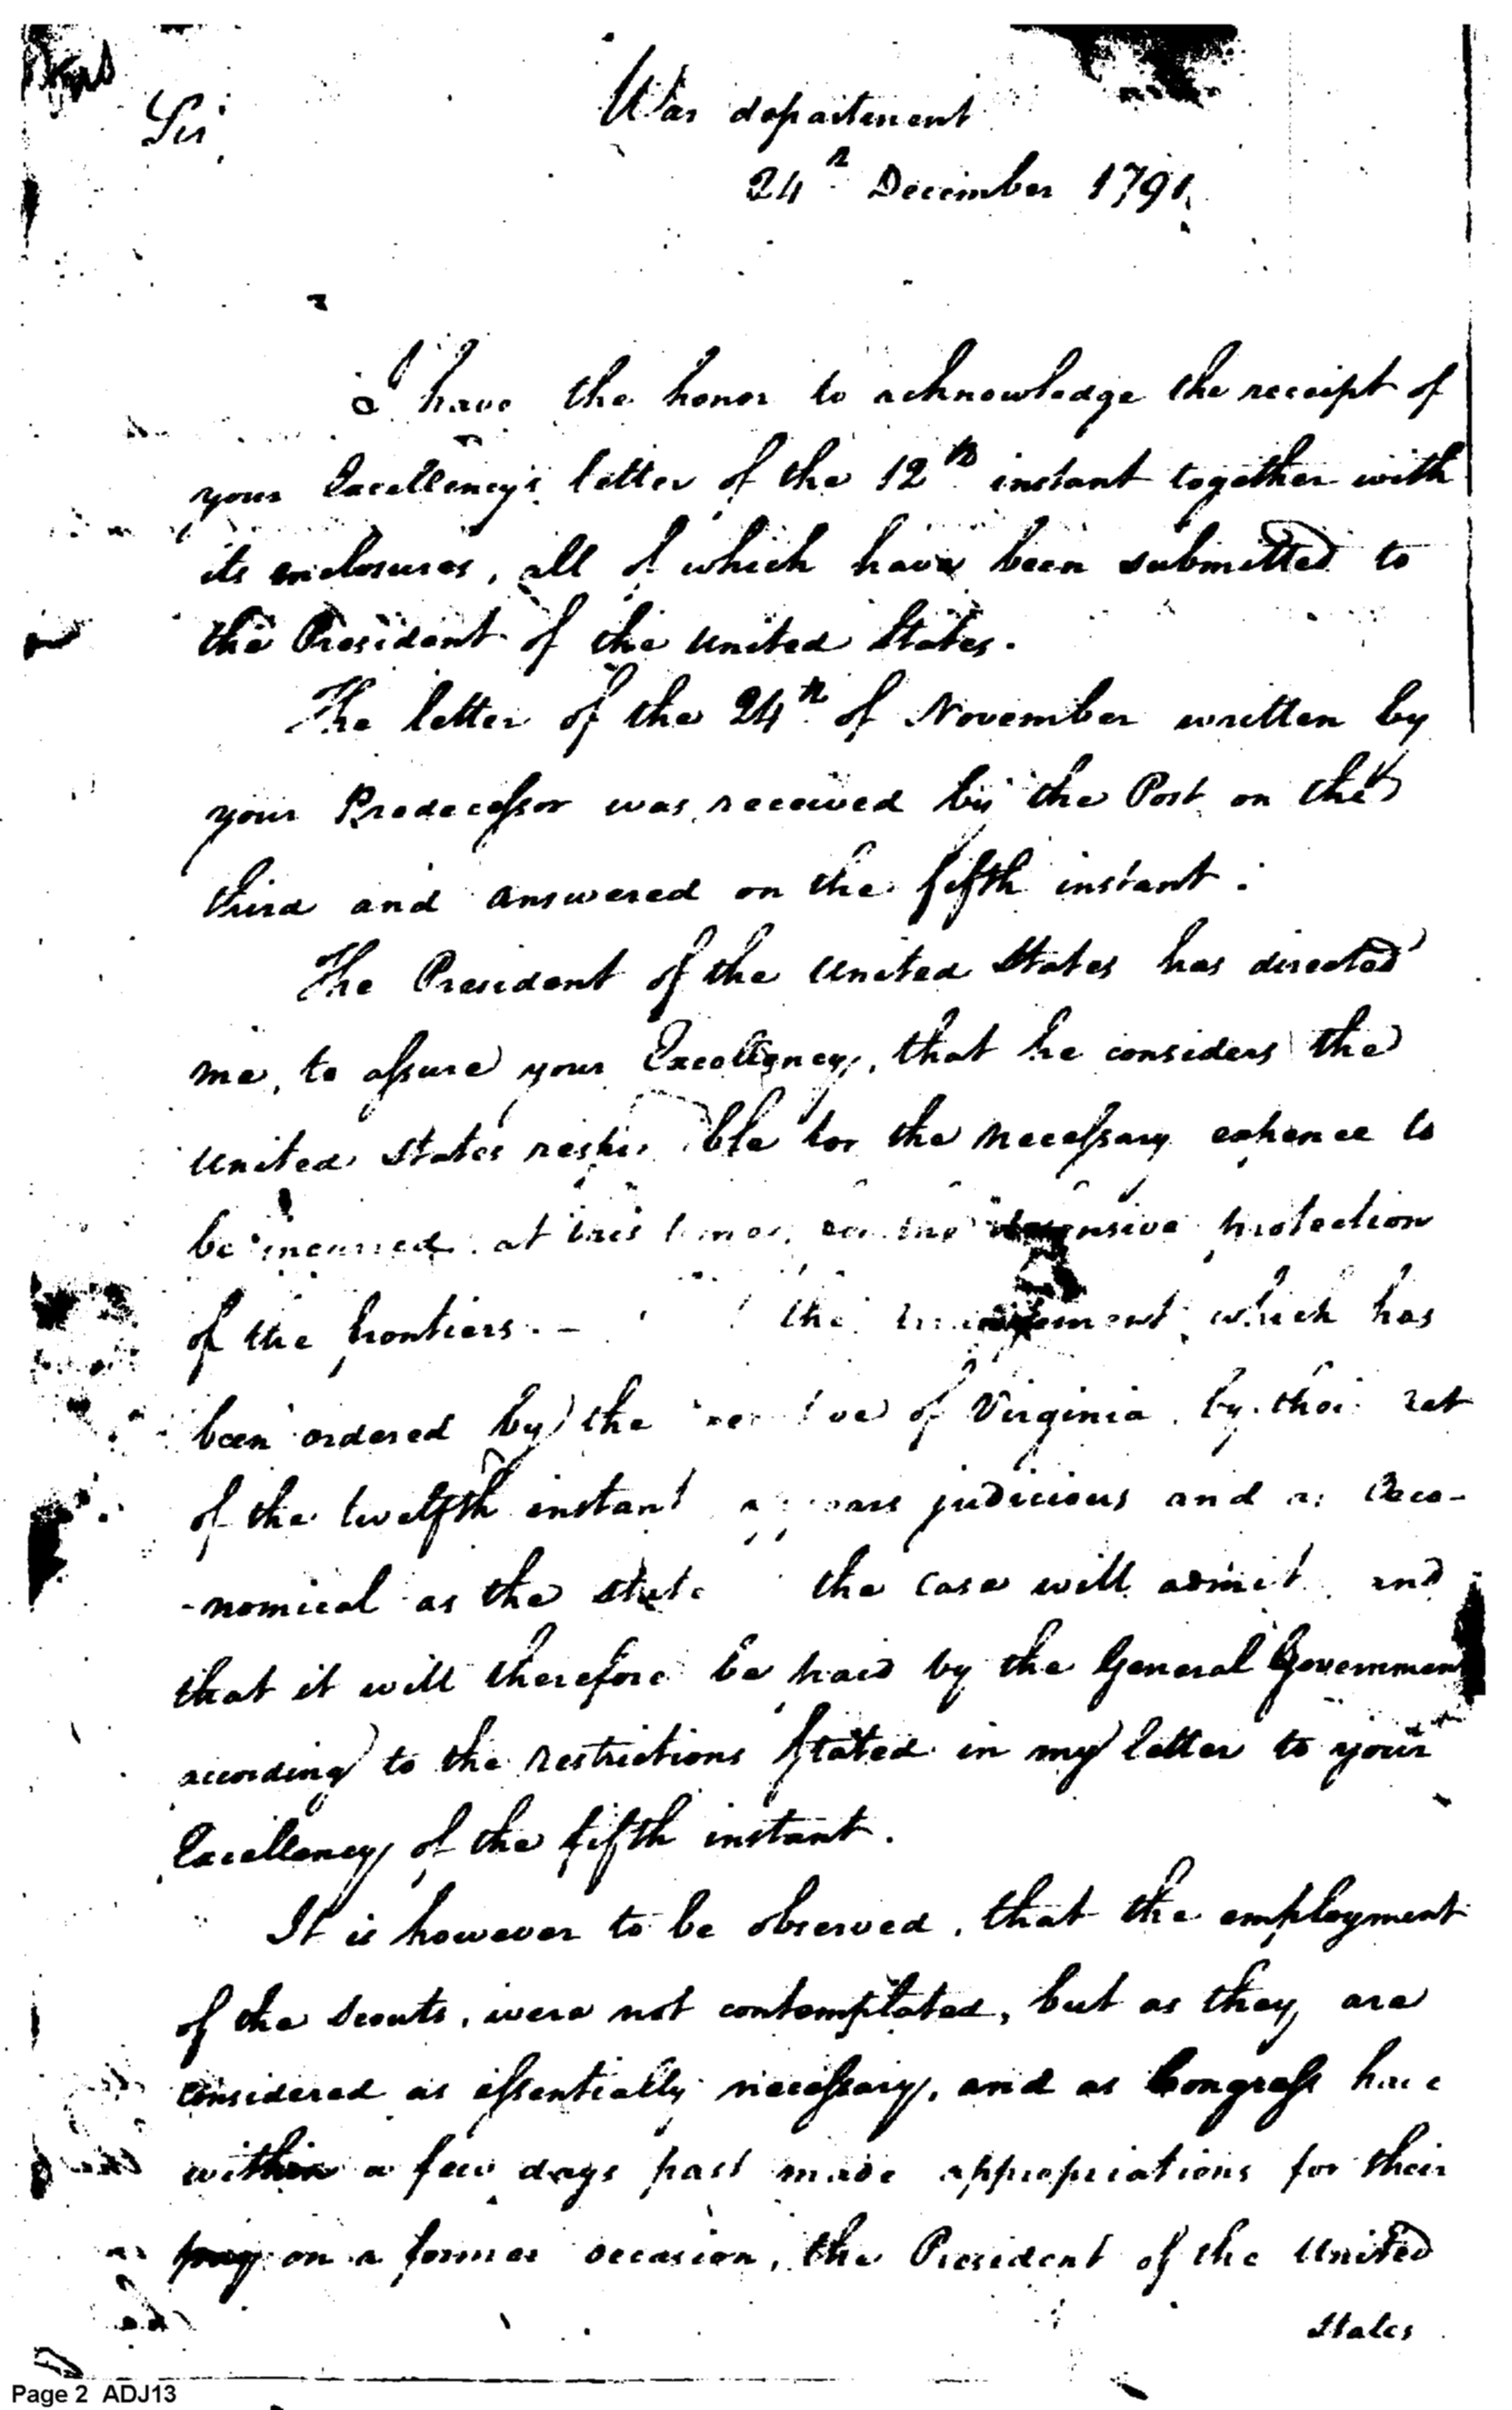 War department
Sir,
24th December 1791.
I have the honor to acknowledge the receipt of
your Excellency's letter of the 12th instant together with
its enclosures, all of which have been submitted to
the President of the United States.
The letter of the 24th of November written by
your Predecessor was received by the Post on the
third and answered on the fifth instant.
The President of the United States has directed
me, to assure your Excellency, that he considers the
United States ble for the necessary expence to
be incurred at this time, protection
of the frontiers. - the which has
been ordered by the of Virginia, by
of the twelfth instant judicious and as Oeco-
-nomical as the state the case will admit and
that it will therefore be paid by the General Government
according to the restrictions stated in my letter to your
Excellency of the fifth instant.
It is however to be observed, that the employment
of the Scouts, were not contemplated, but as they are
considered as essentially necessary, and as Congress have
within a few days past made appropriations for their
pay on a former occasion, the President of the United
States
Page 2 ADJ13